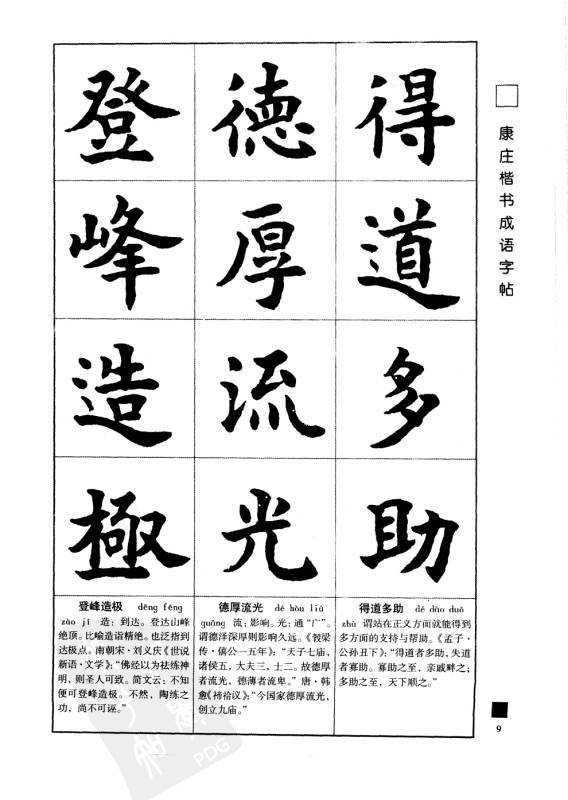 得道多助
德厚流光
登峰造極
康庄楷书成语字帖
得道多助 dé dào duō
zhù 谓站在正义方面就能得到
多方面的支持与帮助。《孟子·
公孙丑下》:“得道者多助,失道
者寡助。寡助之至,亲戚畔之;
多助之至,天下顺之。”
德厚流光 dé hòu liú
guāng 流:影响。光:通“广”。
谓德泽深厚则影响久远。《榖梁
传·僖公一五年》:“天子七庙,
诸侯五,大夫三,士二。故德厚
者流光,德薄者流卑。”唐·韩
愈《禘祫议》:“今国家德厚流光,
创立九庙。”
登峰造极 dēng fēng
zào jí 造:到达。登达山峰
绝顶。比喻造诣精绝。也泛指到
达极点。南朝宋·刘义庆《世说
新语·文学》:“佛经以为祛练神
明,则圣人可致。简文云:不知
便可登峰造极。不然,陶练之
功,尚不可诬。”
9
PDG